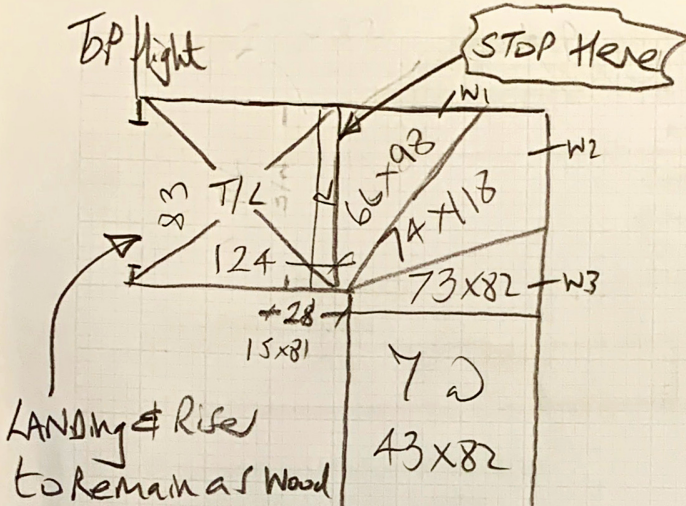 Top flight
STOP Here
W1
W2
66x98
83
T/L
R
74x118
124
73x82
W3
28
15x81
7@
43x82
LANDing & Riser
to Remain as Wood